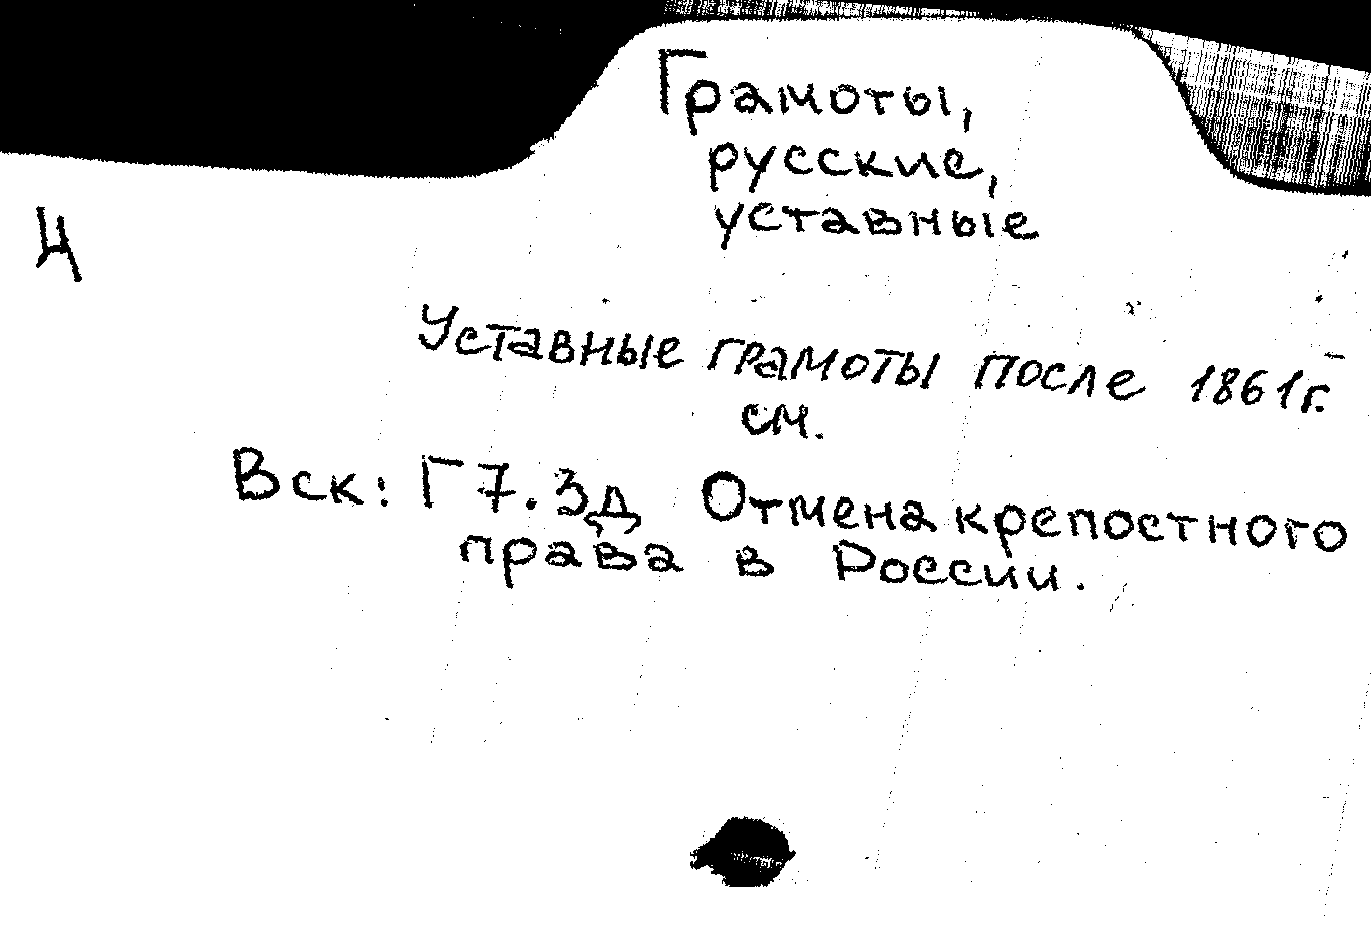 Грамоты,
русские,
уставные
Ц
Уставные грамоты после 1861г.
см.
Вск: Г7.3д Отмена крепостного
права в России.